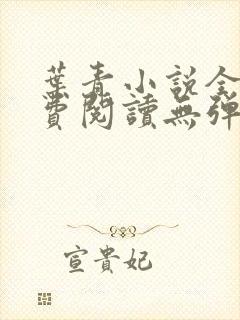 葉青小說全
費閱讀無彈
宣貴妃